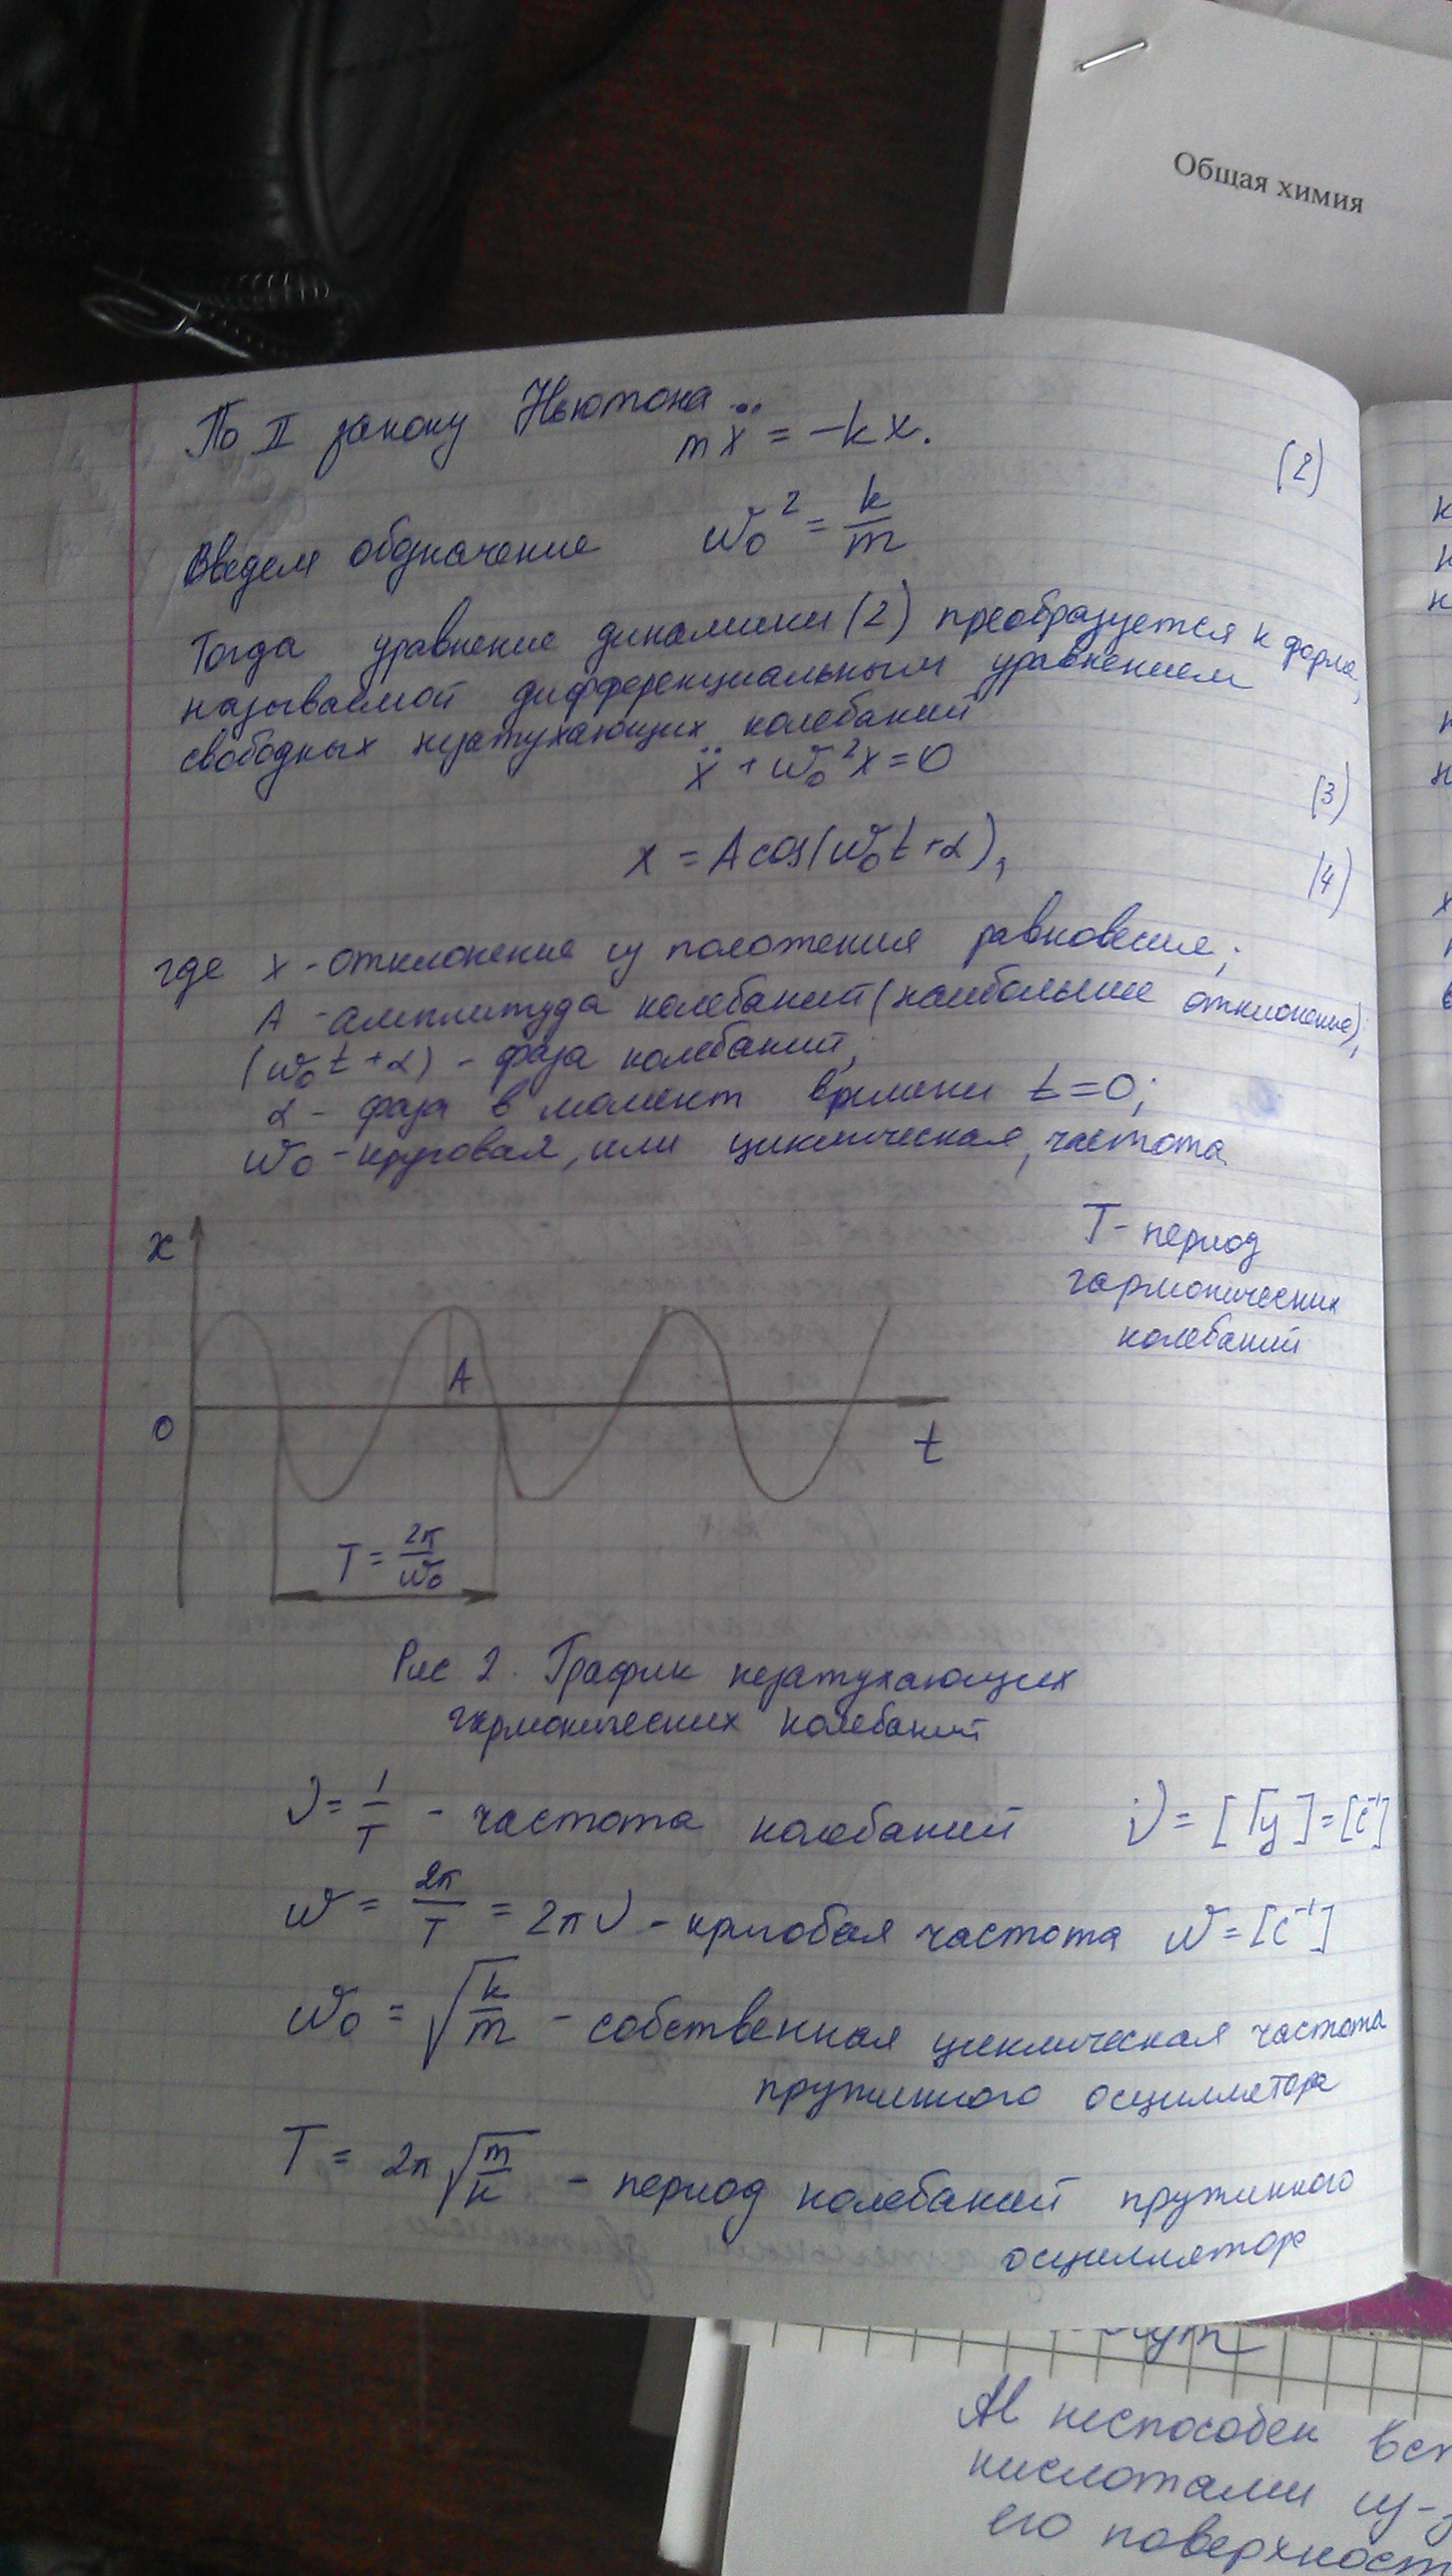 Общая химия
По II закону Ньютона
mẍ = -kx. (2)
Введем обозначение ω₀² = k/m
Тогда уравнение динамики (2) преобразуется к форме,
называемой дифференциальным уравнением
свободных незатухающих колебаний
ẍ + ω₀²x = 0 (3)
x = A cos(ω₀t + α), (4)
где x - отклонение из положения равновесия;
A - амплитуда колебаний (наибольшее отклонение);
(ω₀t + α) - фаза колебаний;
α - фаза в момент времени t = 0;
ω₀ - круговая, или циклическая, частота
x
T - период
гармонических
колебаний
A
0
t
T = 2π/ω₀
Рис 2. График незатухающих
гармонических колебаний
ν = 1/T - частота колебаний ν = [Гц] = [с⁻¹]
ω = 2π/T = 2πν - круговая частота ω = [с⁻¹]
ω₀ = √(k/m) - собственная циклическая частота
пружинного осциллятора
T = 2π√(m/k) - период колебаний пружинного
осциллятора
Al неспособен
кислотами из-
его поверхност